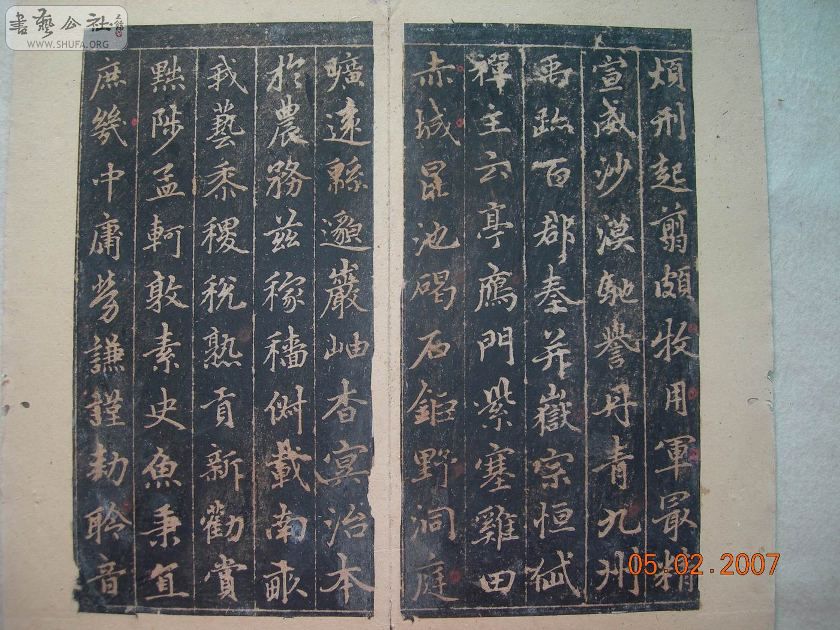 書藝公社
WWW.SHUFA.ORG
煩刑起翦頗牧用軍最精
宣威沙漠馳譽丹青九州
禹跡百郡秦并嶽宗恒岱
禪主云亭鴈門紫塞雞田
赤城昆池碣石鉅野洞庭
曠遠緜邈巖岫杳冥治本
於農務茲稼穡俶載南畝
我藝黍稷稅熟貢新勸賞
黜陟孟軻敦素史魚秉直
庶幾中庸勞謙謹敕聆音
05.02.2007